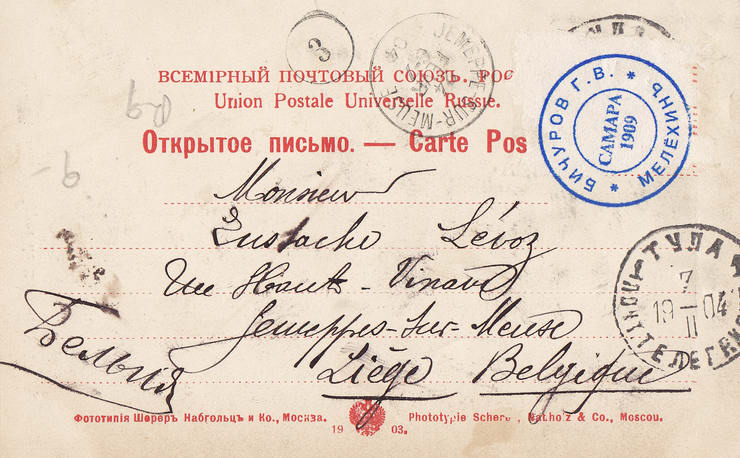 3
JEMEPPE-SUR-MEUSE
ВСЕМІРНЫЙ ПОЧТОВЫЙ СОЮЗЪ. РОС
Union Postale Universelle Russie.
Открытое письмо. — Carte Pos
БИЧУРОВ Г. В. * МЕЛЁХИНЪ *
САМАРА
1909
Monsieur
Eustache Lévoz
Rue Haute-Vinave
Jemeppes-Sur-Meuse
Liège Belgique
Бельгія
ТУЛА
7
19 — 04
II
Фототипія Шереръ Набгольцъ и Ко., Москва.
Phototypie Scherer, Nabholz & Co., Moscou.
19 03.